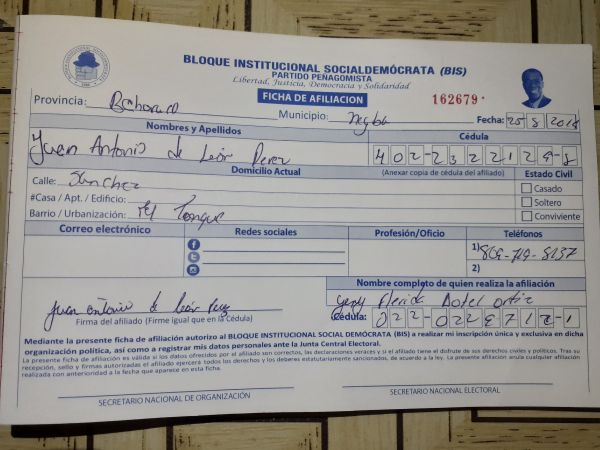 BLOQUE INSTITUCIONAL SOCIALDEMÓCRATA (BIS)
PARTIDO PEÑAGOMISTA
Libertad, Justicia, Democracia y Solidaridad
FICHA DE AFILIACION
162679
Provincia:
Municipio:
Fecha: 25 8 2018
Nombres y Apellidos
Cédula
Juan Antonio de León Perez
402-2322129-8
(Anexar copia de cédula del afiliado)
Domicilio Actual
Estado Civil
Calle: Sanchez
Casado
#Casa / Apt. / Edificio:
Soltero
Barrio / Urbanización:
Conviviente
Correo electrónico
Redes sociales
Profesión/Oficio
Teléfonos
1) 809-719-8137
2)
Nombre completo de quien realiza la afiliación
Juan antonio de león Perez
Firma del afiliado (Firme igual que en la Cédula)
Cédula:
Mediante la presente ficha de afiliación autorizo al BLOQUE INSTITUCIONAL SOCIAL DEMÓCRATA (BIS) a realizar mi inscripción única y exclusiva en dicha
organización política, así como a registrar mis datos personales ante la Junta Central Electoral.
La presente ficha de afiliación es válida si los datos ofrecidos por el afiliado son correctos, las declaraciones veraces y si el afiliado tiene el disfrute de sus derechos civiles y políticos. Tras su
recepción, sello y firmas autorizadas el afiliado ejercerá todos los derechos y los deberes estatutariamente sancionados, de acuerdo a la ley. La presente afiliación anula cualquier afiliación
realizada con anterioridad a la fecha que aparece en esta ficha.
SECRETARIO NACIONAL DE ORGANIZACIÓN
SECRETARIO NACIONAL ELECTORAL